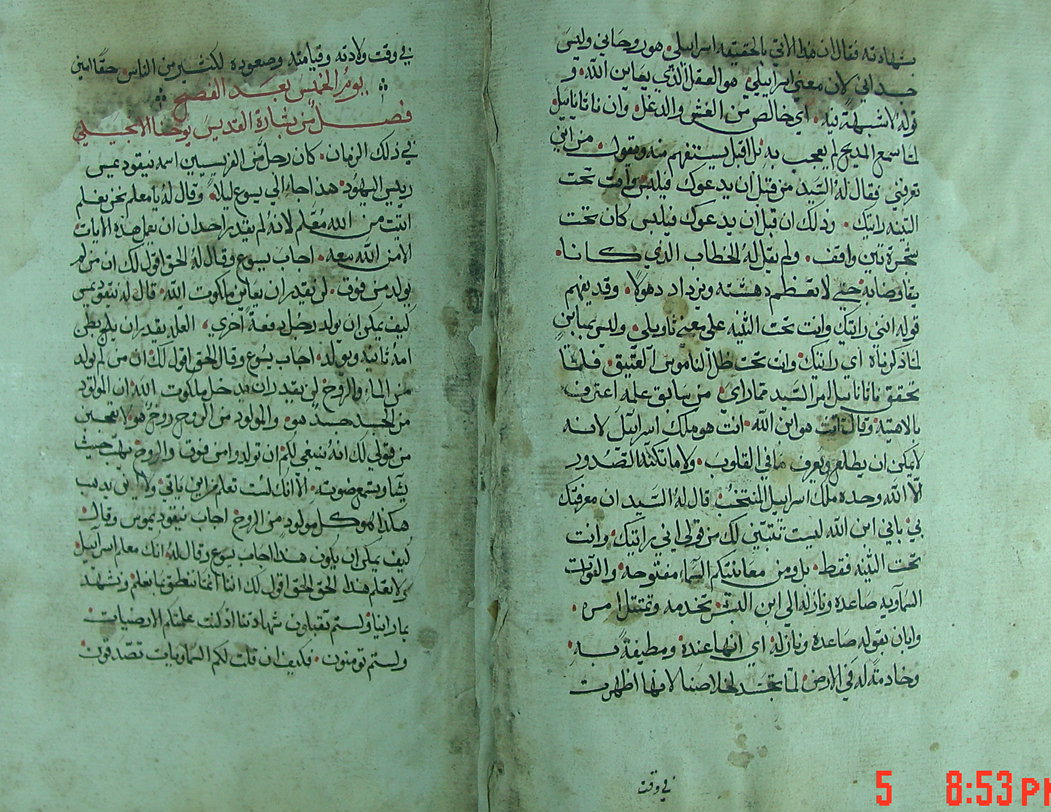 شهادته فقال ان هذا الاتي بالحقيقه اسراييلي هو روحاني وليس
جسداني لان معنى اسراييلي هو العقل الذي يعاين الله و
قوله لا شبهة فيه اي خالص من الغش والدغل وان ناثاناييل
لما سمع المديح لم يعجب به بل اقبل يستفهم منه ويقول من اين
تعرفني فقال له السيد من قبل ان يدعوك فيلبس وانت تحت
التينه رايتك وذلك ان قبل ان يدعوك فيلبس كان تحت
شجرة تين واقف ولم يقل له الخطاب الذي كانا
يتفاوضانه حتى لا تعظم دهشته ويزداد دهولا وقد يفهم
قوله انني رايتك وانت تحت التينه على معنى تاويلي وليس بمباين
لما ذكرناه اي رايتك وانت تحت ظل الناموس العتيق فلما
تحقق ناثاناييل امر السيد مما راى من سابق علمه اعترف
بالاهيته وقال انت هو ابن الله انت هو ملك اسراييل لانه
لا يمكن ان يطلع ويعرف ما في القلوب ولا ما تكنه الصدور
الا الله وحده ملك اسراييل المنتخب قال له السيد ان معرفتك
بي باني ابن الله ليست تتبين لك من قولي اني رايتك وانت
تحت التينه فقط بل ومن معاينتكم السماء مفتوحه والقوات
السماويه صاعده ونازله الي ابن البشر تخدمه وتمتثل امره
وابان بقوله صاعده ونازله اي انها عنده ومطيفة به
وخادمة له في الارض لما تجسد لخلاصنا لانها اظهرت
في وقت
في وقت ولادته وقيامته وصعوده لكثير من الناس حقا امين
يوم الخميس بعد الفصح
فصل من بشارة القديس يوحنا الانجيلي
في ذلك الزمان كان رجل من الفريسيين اسمه نيقوديمس
رييس اليهود هذا جاء الي يسوع ليلا وقال له يا معلم نحن نعلم
انك اتيت من الله معلم لانه لم يقدر احد ان يعمل هذه الايات
الا من الله معه اجاب يسوع وقال له الحق اقول لك ان من لم
يولد من فوق لن يقدر ان يعاين ملكوت الله قال له نيقوديمس
كيف يمكن ان يولد رجل دفعة اخرى العله يقدر ان يلج بطن
امه ثانية ويولد اجاب يسوع وقال الحق اقول لك ان من لم يولد
من الماء والروح لن يقدر ان يدخل ملكوت الله ان المولود
من الجسد جسد هو والمولود من الروح روح هو لا تعجبن
من قولي لك انه ينبغي لكم ان تولدوا من فوق والروح يهب حيث
يشا وتسمع صوته الا انك لست تعلم من اين ياتي ولا اين يدهب
هكذا هو كل مولود من الروح اجاب نيقوديموس وقال
كيف يمكن ان يكون هذا اجاب يسوع وقال له انك معلم اسراييل
ولا تعلم هذا الحق الحق اقول لك اننا انما ننطق بما نعلم ونشهد
بما راينا ولستم تقبلون شهادتنا اذ كنت علمتكم الارضيات
ولستم تومنون فكيف ان قلت لكم السماويات تصدقون
5 8:53 PM